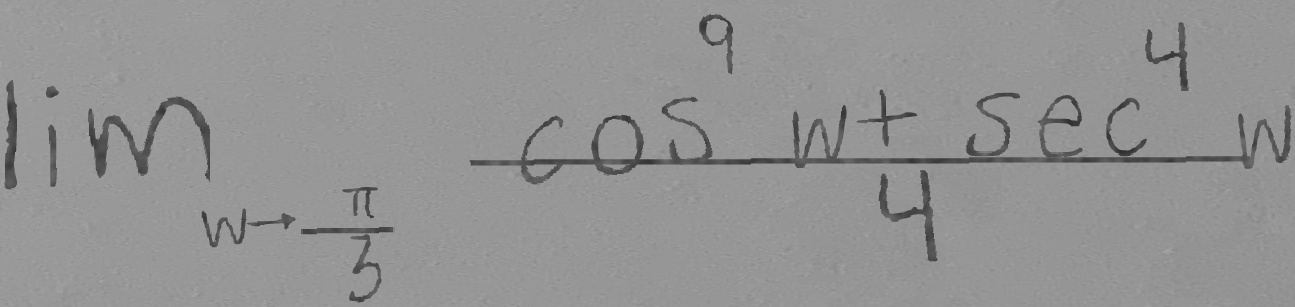 lim_{w→\frac{π}{3}} \frac{cos^9 w + sec^4 w}{4}